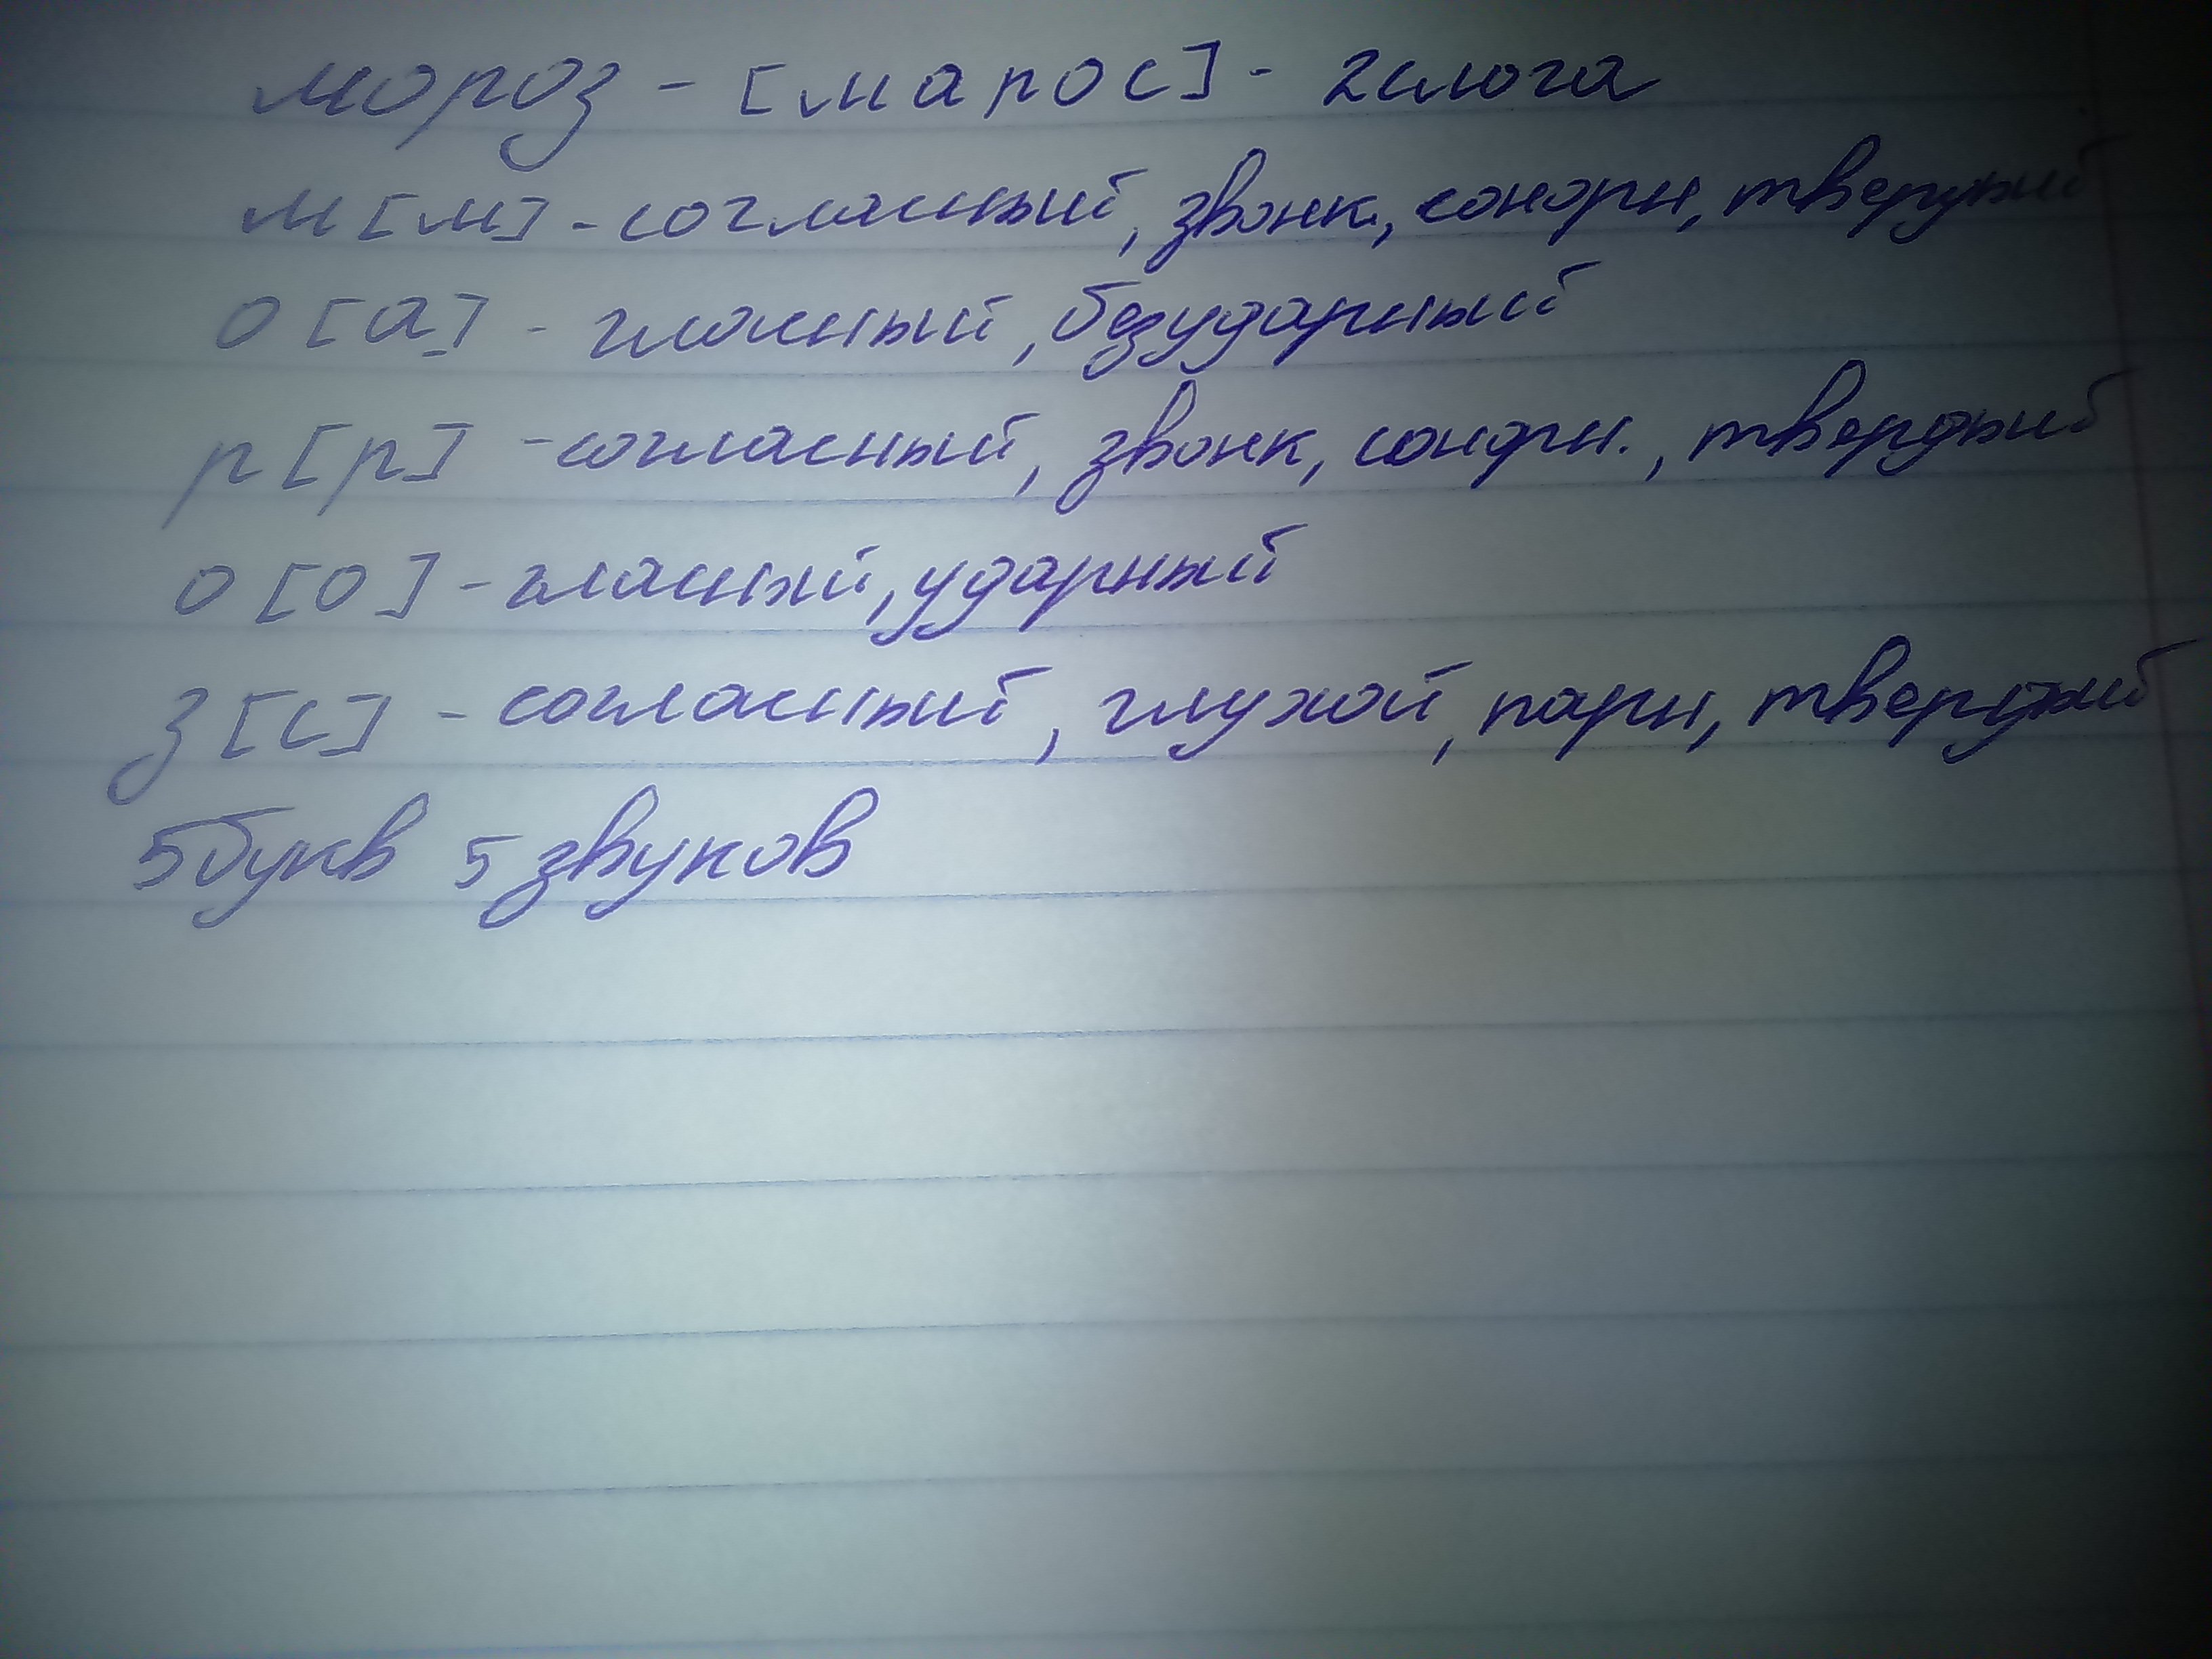 мороз - [марос] - 2 слога
м [м] - согласный, звонк., сонорн, твердый
о [а] - гласный, безударный
р [р] - согласный, звонк, сонорн., твердый
о [о] - гласный, ударный
з [с] - согласный, глухой, парн, твердый
5 букв 5 звуков